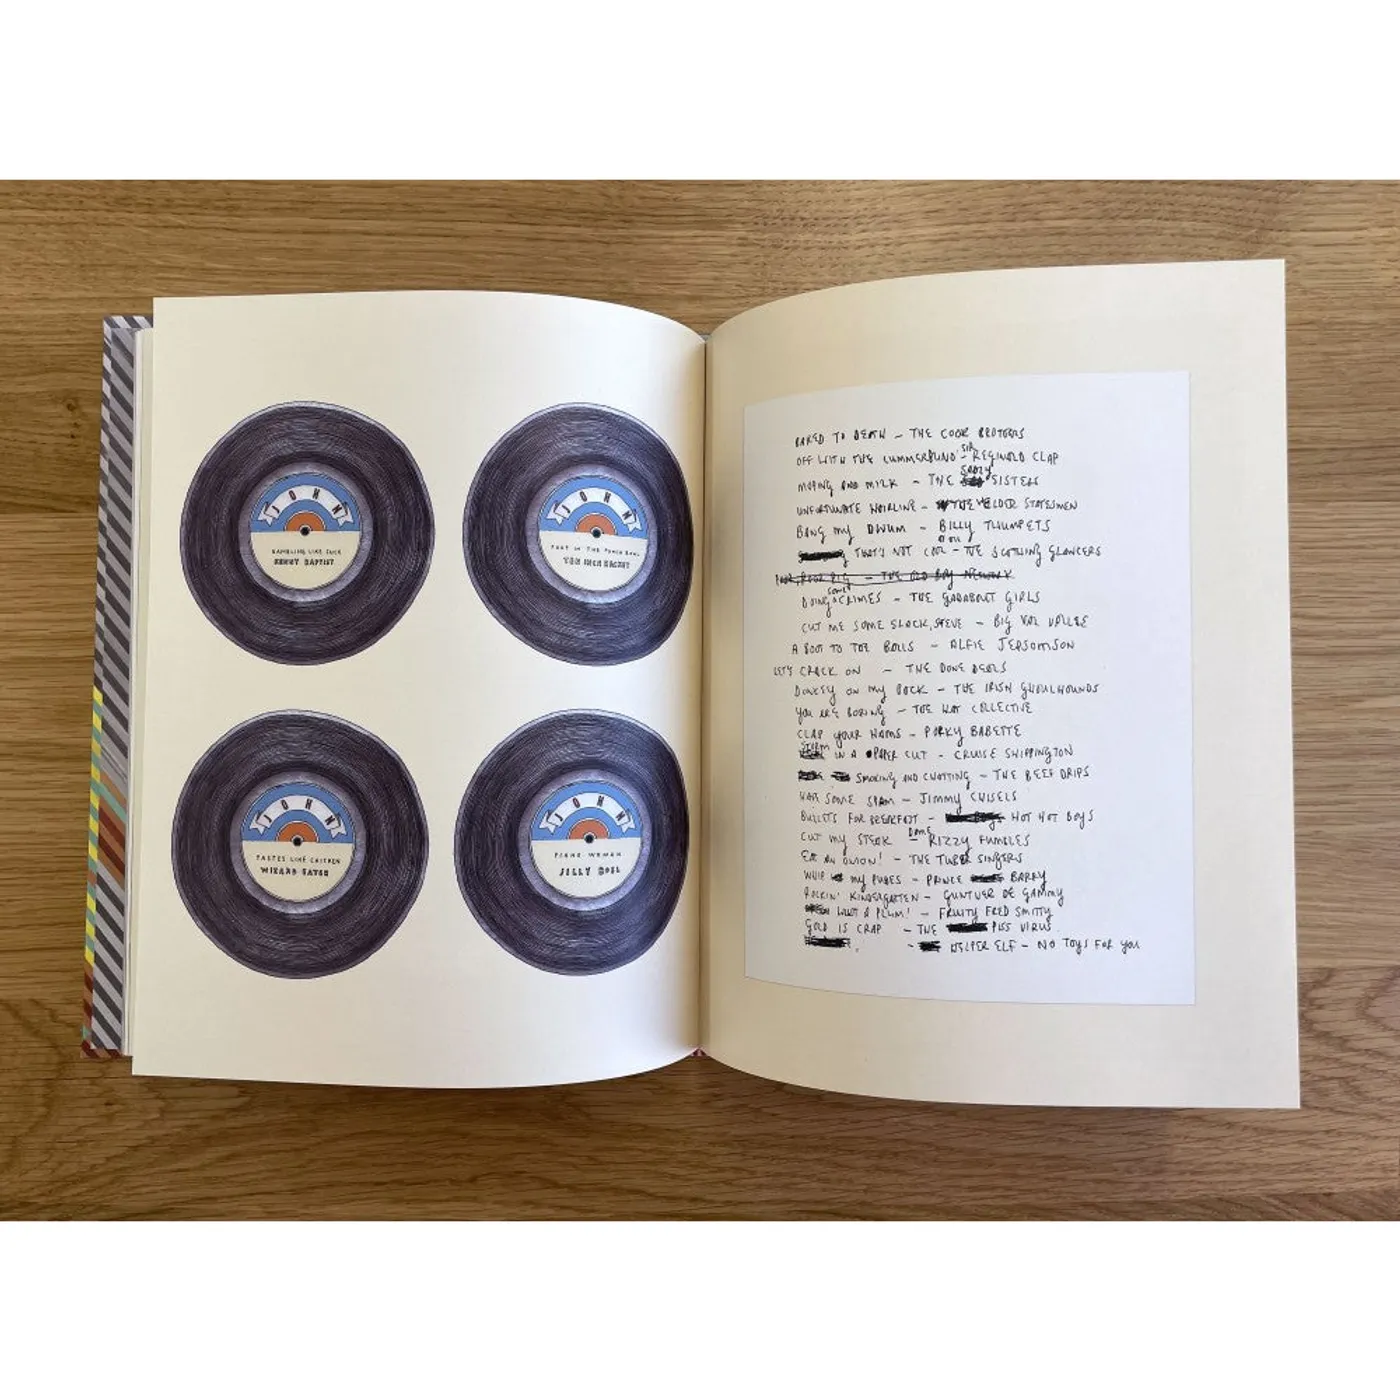 JOHN
GAMBLING LIKE
KENNY BAPTIST
JOHN
FOOT IN THE
TEN INCH
JOHN
TASTES LIKE CHICKEN
WIZARD EATER
JOHN
PIANO WOMAN
JILLY BOEL
BAKED TO DEATH – THE COOK BROTHERS
OFF WITH THE CUMMERBUND – SIR REGINALD CLAP
MOPING AND MILK – THE SISTERS
UNFORTUNATE HAIRLINE – THE ELDER STATESMEN
BANG MY DRUM – BILLY THUMPETS
THAT'S NOT COOL – THE GLANCERS
– THE OLD BOY NETWORK
DOING SOME CRIMES – THE GADABOUT GIRLS
CUT ME SOME SLACK, STEVE – BIG VAL
A BOOT TO THE BALLS – ALFIE JEPSOMSON
LET'S CRACK ON – THE DONE DEALS
DONKEY ON MY BACK – THE IRISH GHOULHOUNDS
YOU ARE BORING – THE COLLECTIVE
CLAP YOUR HAMS – PORKY BABETTE
STORM IN A PAPER CUT – CRUISE SHIPPINGTON
SMOKING AND CHATTING – THE BEEF DRIPS
HAVE SOME SPAM – JIMMY CHISELS
BULLETS FOR BREAKFAST – HOT HOT BOYS
CUT MY STEAK – DAME RIZZY FUMBLES
EAT AN ONION! – THE TUBER SINGERS
WHIP MY PUBES – PRINCE BARRY
ROCKIN' KINDERGARTEN – GUNTHER DE GAMMY
WHAT A PLUM! – FRUITY FRED SMITTY
GOLD IS CRAP – THE PISS VIRUS
– HELPER ELF – NO TOYS FOR YOU